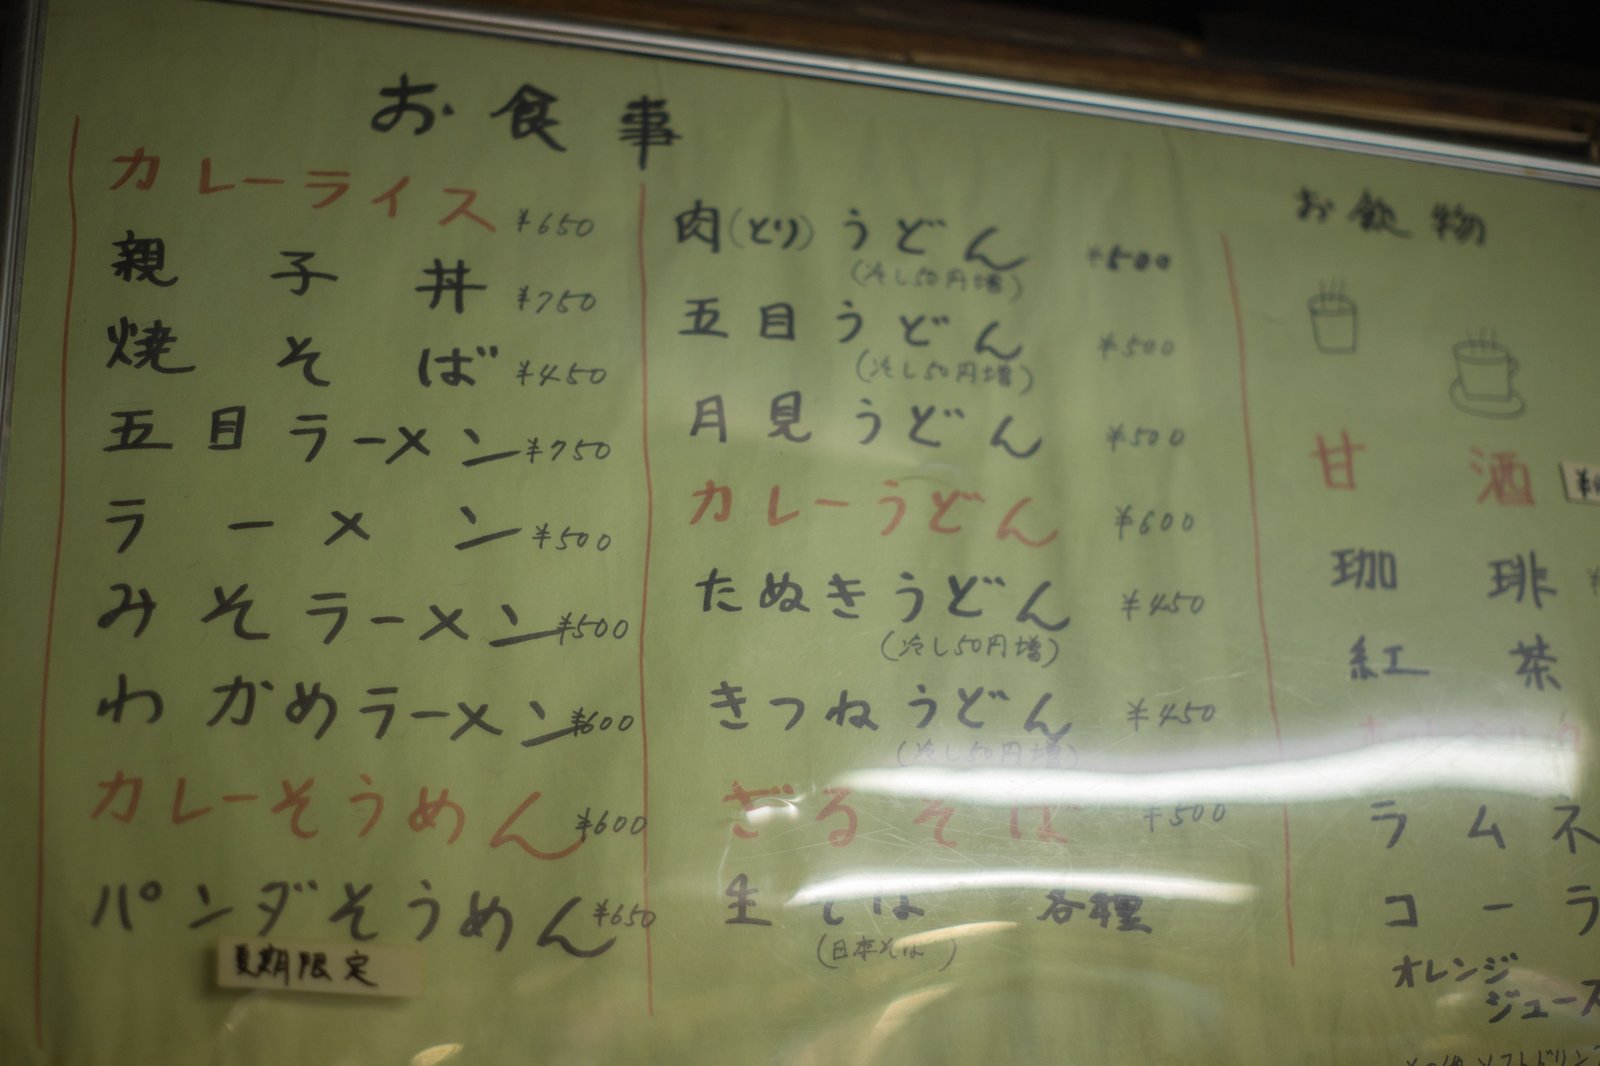 お食事
カレーライス ¥650
親子丼 ¥750
焼そば ¥450
五目ラーメン ¥750
ラーメン ¥500
みそラーメン ¥500
わかめラーメン ¥600
カレーそうめん ¥600
パンダそうめん ¥650
夏期限定
肉(とり)うどん ¥500
(冷し50円増)
五目うどん ¥500
(冷し50円増)
月見うどん ¥500
カレーうどん ¥600
たぬきうどん ¥450
(冷し50円増)
きつねうどん ¥450
(冷し50円増)
ざるそば ¥500
生そば 各種
(日本そば)
お飲物
甘酒
珈琲
紅茶
ラムネ
コーラ
オレンジ
ジュース